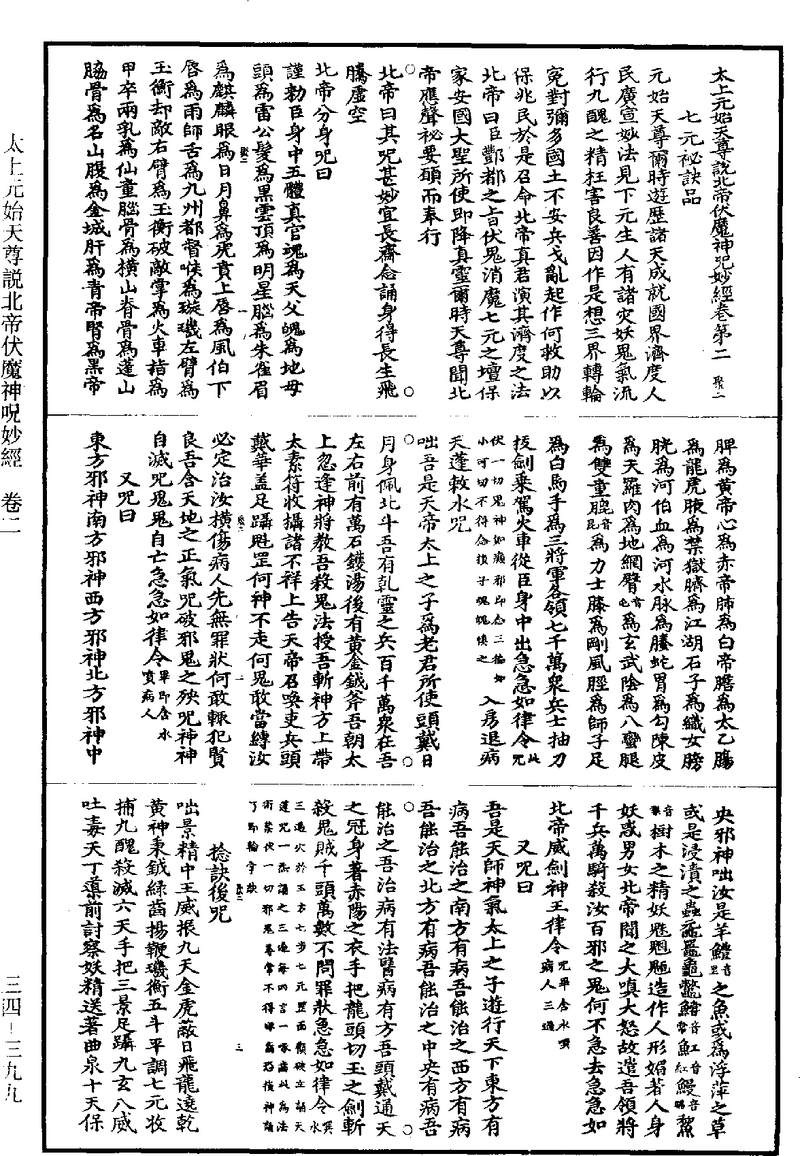 太上元始天尊說北帝伏魔神呪妙經卷第二
七元祕訣品
元始天尊爾時遊歷諸天成就國界濟度人
民廣宣妙法見下元生人有諸災妖鬼氣流
行九醜之精枉害良善因作是想三界轉輪
冤對彌多國土不安兵戈亂起作何救助以
保兆民於是召命北帝真君演其濟度之法
北帝曰臣酆都之旨伏鬼消魔七元之壇保
家安國大聖所使即降真靈爾時天尊聞北
帝應聲祕要頤而奉行
北帝曰其呪甚妙宜長齋念誦身得長生飛
騰虛空
北帝分身呪曰
謹勑臣身中五體真官魂為天父魄為地母
頭為雷公髮為黑雲頂為明星腦為朱雀眉
為麒麟眼為日月鼻為虎賁上唇為風伯下
唇為雨師舌為九州都督喉為璇璣左臂為
玉衡却敵右臂為玉衡破敵掌為火車指為
甲卒兩乳為仙童腦骨為橫山脊骨為蓬山
脇骨為名山腹為金城肝為青帝腎為黑帝
脾為黃帝心為赤帝肺為白帝膽為太乙腸
為龍虎腋為禁獄臍為江湖石子為織女膀
胱為河伯血為河水脉為螣蛇胃為勾陳皮
為天羅肉為地網臀為玄武陰為八蠻腿
為雙童䐊為力士膝為剛風脛為師子足
為白馬手為三將軍各領七千萬衆兵士抽刀
拔劍乘駕火車從臣身中出急急如律令
入房退病
天蓬敕水呪
咄吾是天帝太上之子為老君所使頭戴日
月身佩北斗吾有乾靈之兵百千萬衆在吾
左右前有萬石鑊湯後有黃金鉞斧吾朝太
上忽逢神將教吾殺鬼法授吾斬神方上帶
太素符收攝諸不祥上告天帝召喚吏兵頭
戴華蓋足躡魁罡何神不走何鬼敢當縛汝
必定治汝橫傷病人先無罪狀何敢輒犯賢
良吾含天地之正氣呪破邪鬼之殃呪神神
自滅呪鬼鬼自亡急急如律令畢即含水噴病人
又呪曰
東方邪神南方邪神西方邪神北方邪神中
央邪神咄汝是羊鱧之魚或為浮萍之草
或是浸漬之蟲黿鼉龜鼈鱔魟鰻鯬
樹木之精妖魅造作人形媚著人身
妖惑男女北帝聞之大嗔大怒故遣吾領將
千兵萬騎殺汝百邪之鬼何不急去急急如
北帝威劍神王律令呪畢含水噀病人三遍
又呪曰
吾是天師神氣太上之子遊行天下東方有
病吾能治之南方有病吾能治之西方有病
吾能治之北方有病吾能治之中央有病吾
能治之吾治病有法醫病有方吾頭戴通天
之冠身著赤陽之衣手把龍頭切玉之劍斬
殺鬼賊千頭萬數不問罪狀急急如律令
捻訣後呪
咄景精中王威振九天金虎敵日飛龍遶乾
黃神秉鉞綠齒揚鞭璣衡五斗平調七元收
捕九醜殺滅六天手把三景足躡九玄八威
吐毒天丁導前討察妖精送著曲泉十天保
太上元始天尊說北帝伏魔神呪妙經 卷二
三四—三九九